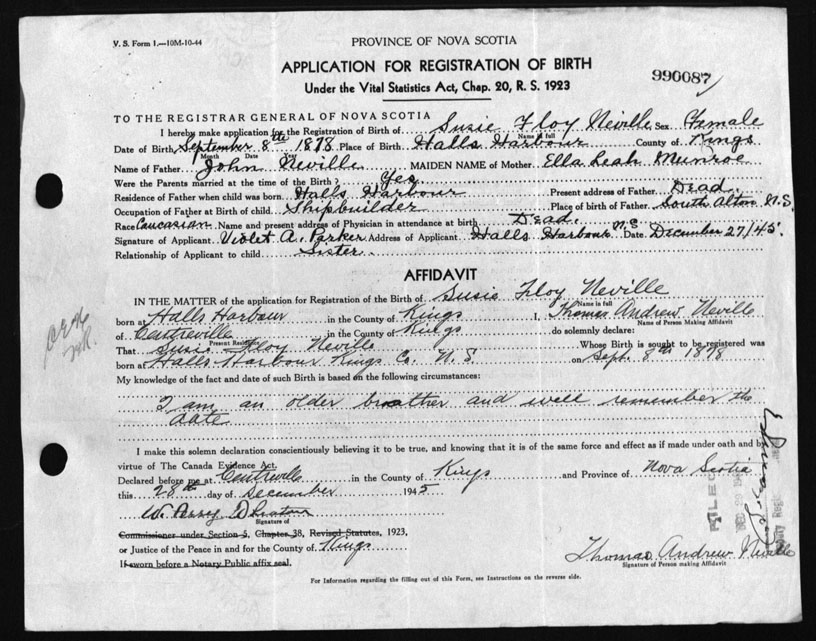 V. S. Form 1.—10M-10-44
PROVINCE OF NOVA SCOTIA
APPLICATION FOR REGISTRATION OF BIRTH
Under the Vital Statistics Act, Chap. 20, R. S. 1923
990087
TO THE REGISTRAR GENERAL OF NOVA SCOTIA
I hereby make application for the Registration of Birth of Susie Floy Neville Sex Female
Name in full
Date of Birth September 8th 1878 Place of Birth Halls Harbour County of Kings
Month Date Year
Name of Father John Neville MAIDEN NAME of Mother Ella Leah Munroe
Were the Parents married at the time of the Birth? Yes
Residence of Father when child was born Halls Harbour Present address of Father Dead.
Occupation of Father at Birth of child Shipbuilder Place of birth of Father South Alton N.S.
Race Caucasian Name and present address of Physician in attendance at birth Dead.
Signature of Applicant Violet A. Parker Address of Applicant Halls Harbour N.S. Date December 27/45
Relationship of Applicant to child Sister
AFFIDAVIT
IN THE MATTER of the application for Registration of the Birth of Susie Floy Neville
Name in full
born at Halls Harbour in the County of Kings I, Thomas Andrew Neville
Name of Person Making Affidavit
of Centreville in the County of Kings do solemnly declare:
Present Residence
That Susie Floy Neville Whose Birth is sought to be registered was
born at Halls Harbour Kings Co. N. S. on Sept. 8th 1878
My knowledge of the fact and date of such Birth is based on the following circumstances:
I am an older brother and well remember the
date
I make this solemn declaration conscientiously believing it to be true, and knowing that it is of the same force and effect as if made under oath and by
virtue of The Canada Evidence Act.
Declared before me at Centreville in the County of Kings and Province of Nova Scotia
this 28th day of December 1945
W. Percy
Signature of
Commissioner under Section 5, Chapter 38, Revised Statutes, 1923,
or Justice of the Peace in and for the County of Kings
If sworn before a Notary Public affix seal.
Thomas Andrew Neville
Signature of Person making Affidavit
For Information regarding the filling out of this Form, see Instructions on the reverse side.
FILED